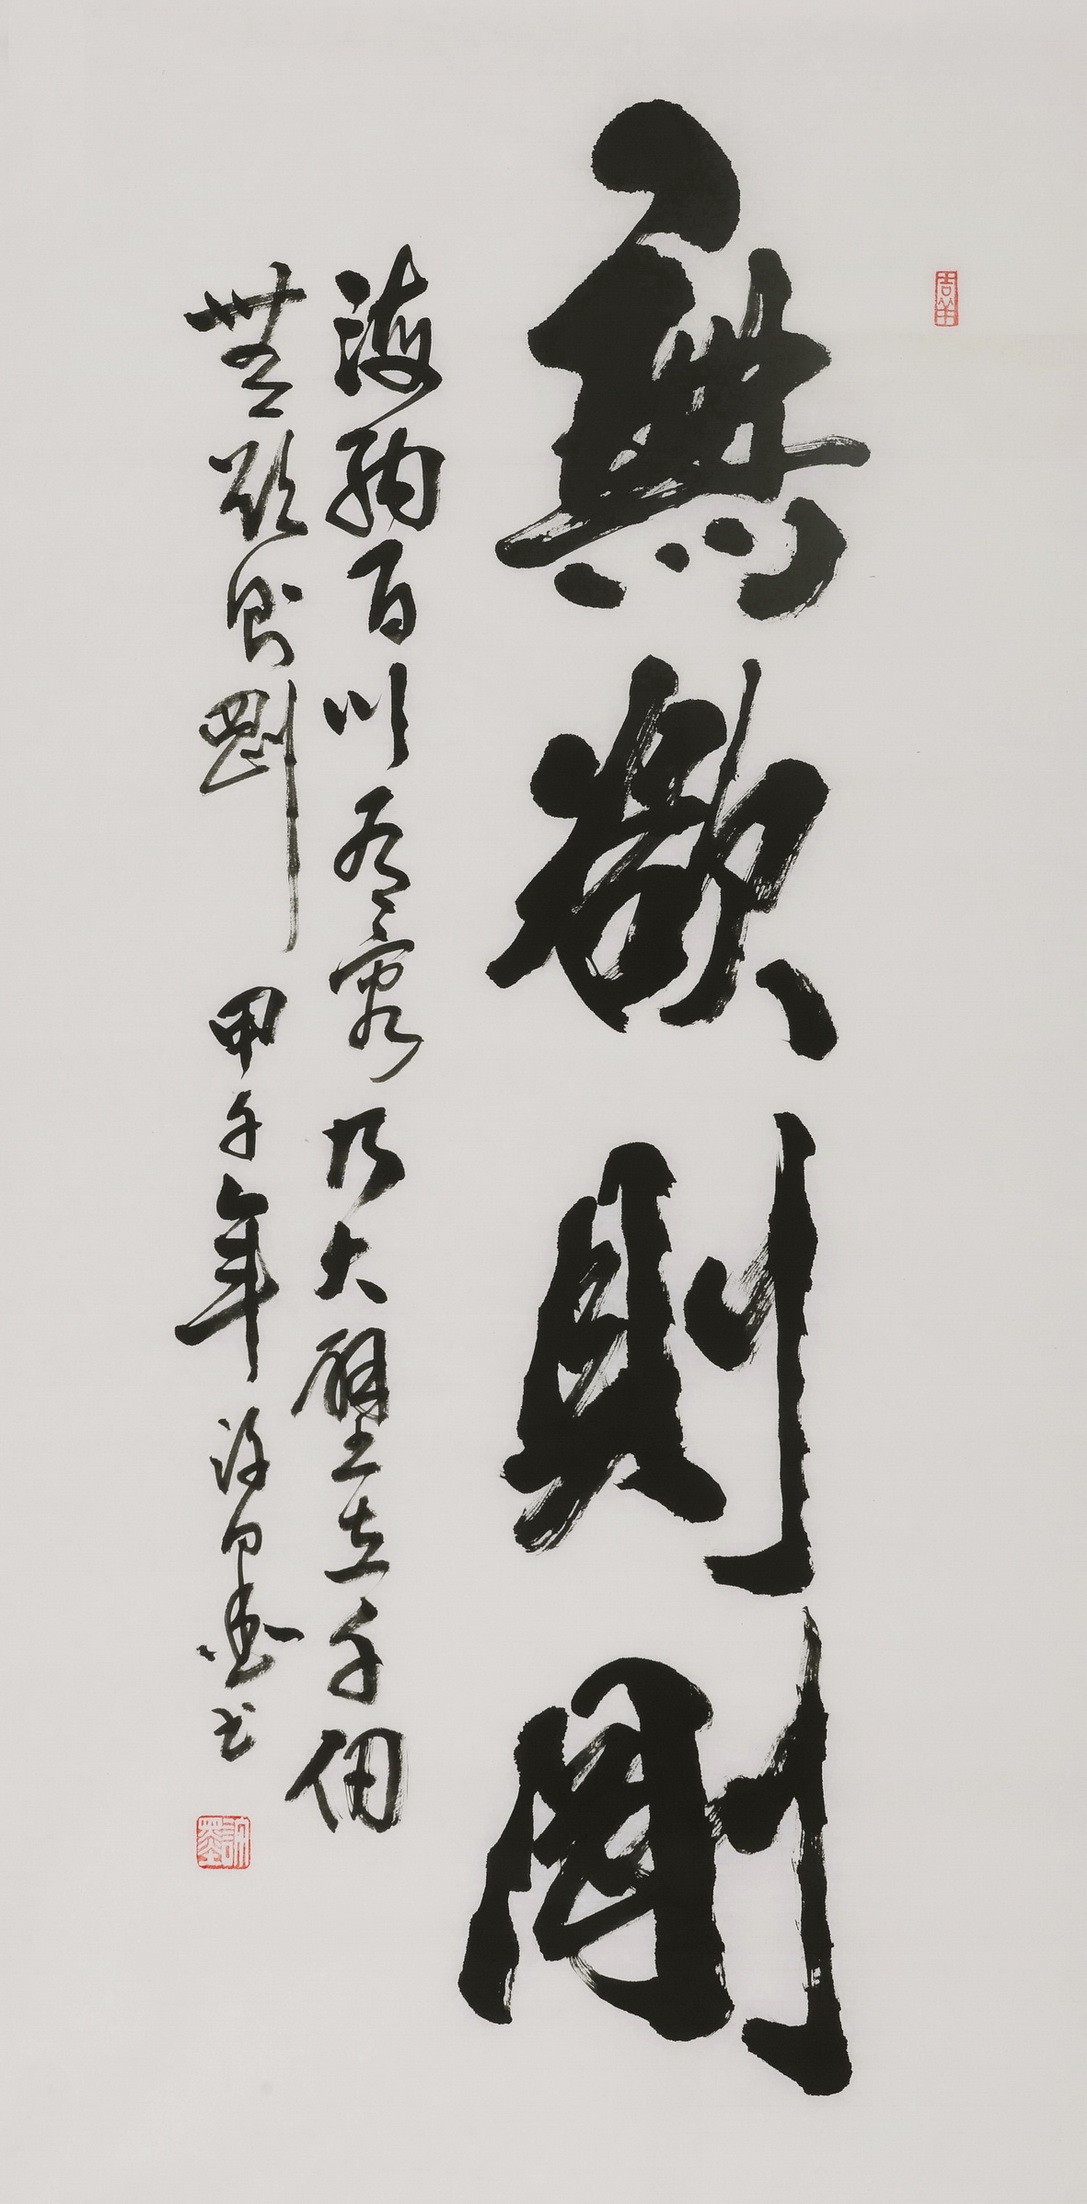 無欲則剛
海納百川有容乃大壁立千仞
無欲則剛 甲午年 許 墨書